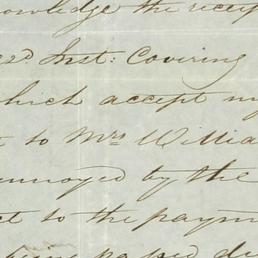 owledge the recei
22d Inst: Covering
which accept my
to Mrs Willia
annoyed by the
ct to the paym
being passed du